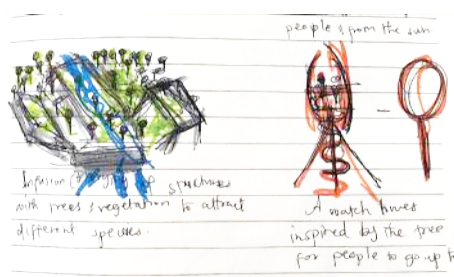 people & from the sun
Infusion of structures
with trees & vegetation to attract
different species.
A watch tower
inspired by the tree
for people to go up t